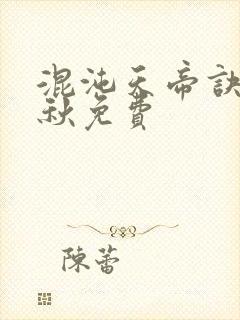 混沌天帝訣
秋免費
陳蕾